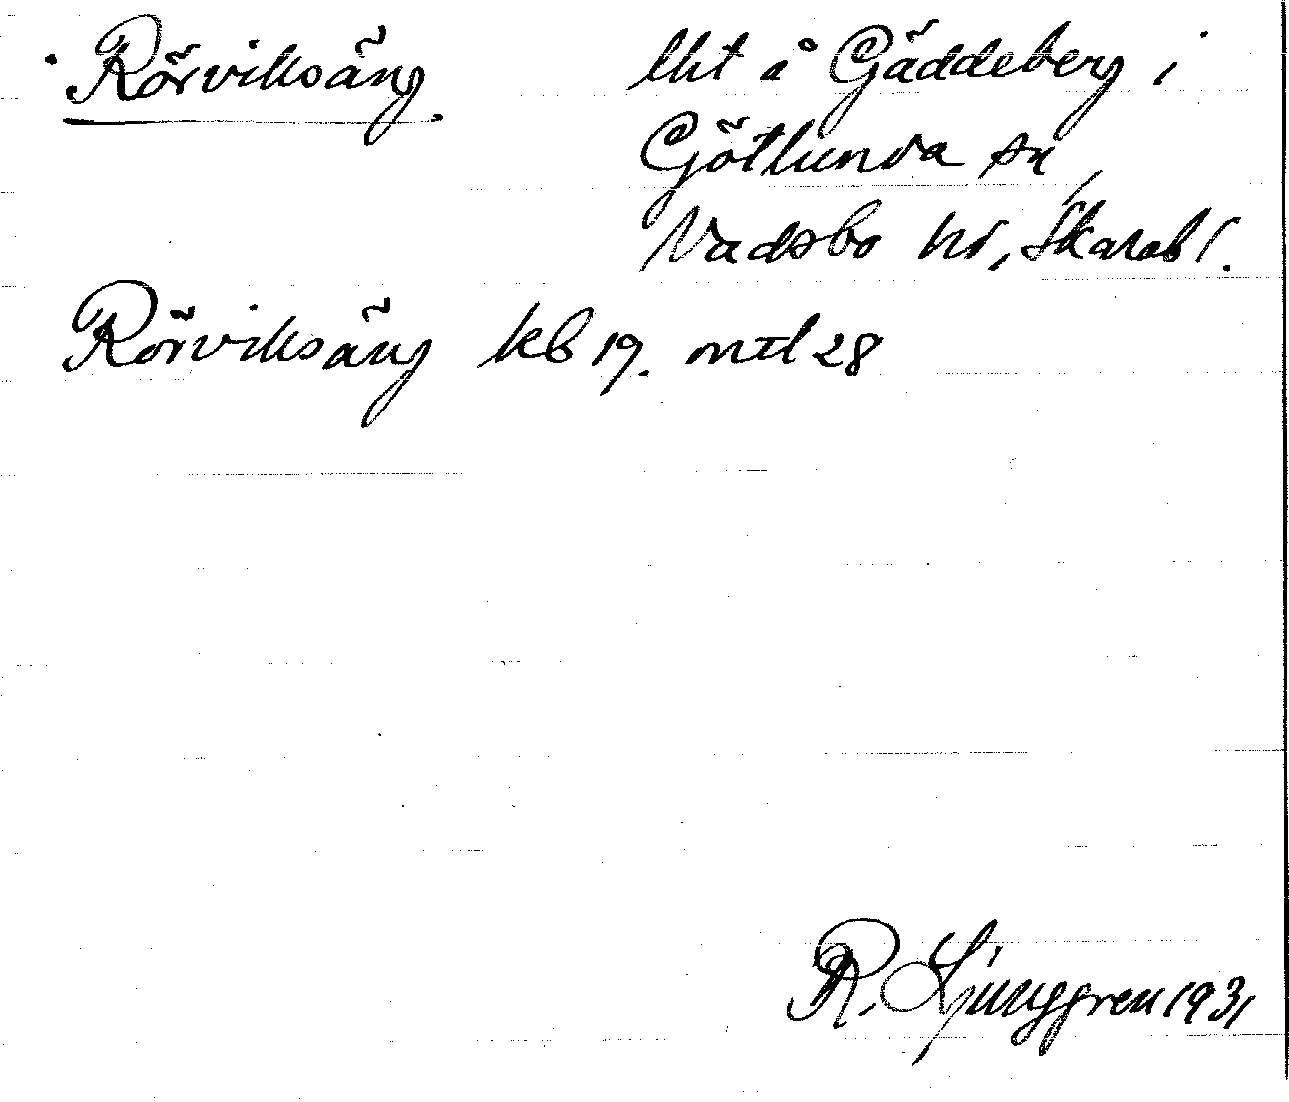 Rörviksäng lht å Gäddeberg i
Götlunda sn,
Vadsbo hd, Skarab l.
Rörviksäng kb 19. mtl 28
R. Ljunggren 1931